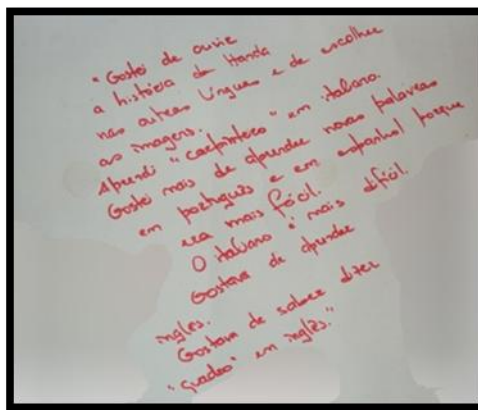 "Gostei de ouvir
a história da Handa
nas outras línguas e de escolher
as imagens.
Aprendi "carpinteiro" em italiano.
Gostei mais de aprender novas palavras
em português e em espanhol porque
era mais fácil.
O italiano é mais difícil.
Gostava de aprender
inglês.
Gostava de saber dizer
"quadro" em inglês."